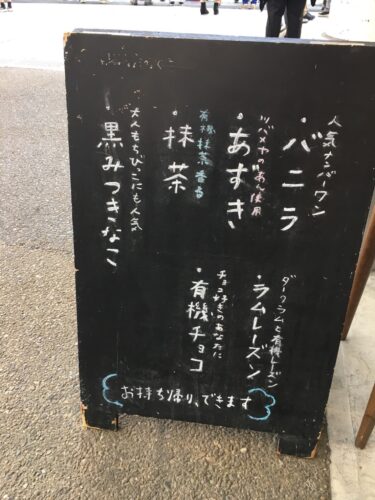 人気ナンバーワン
・バニラ
ツバメヤのあん使用
・あずき
有機抹茶香る
・抹茶
大人もちびっこにも人気
・黒みつきなこ
ダークラムと有機レーズン
・ラムレーズン
チョコ好きのあなたに
・有機チョコ
お持ち帰り、できます